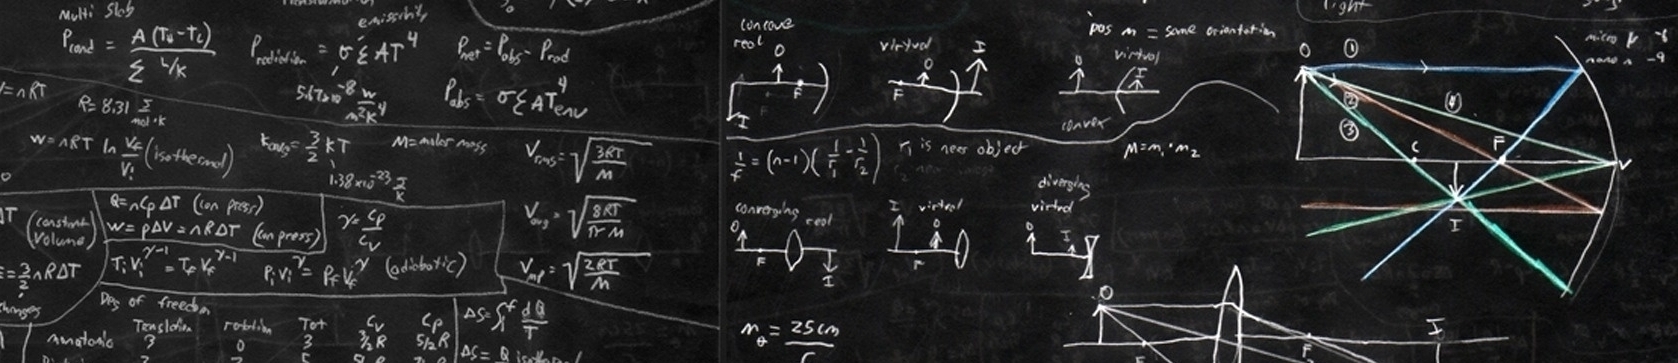 Multi Slab
P_cond = A(T_H - T_C) / Σ L/K
emissibily
P_radiation = σ Σ A T⁴
5.67x10⁻⁸ W/m²K⁴
P_net = P_abs - P_rad
P_abs = σ Σ A T⁴_env
V = nRT
R = 8.31 J/mol·K
W = nRT ln V_f/V_i (isothermal)
K_avg = 3/2 kT
1.38x10⁻²³ J/K
M = molar mass
V_rms = √(3RT/M)
V_avg = √(8RT/πM)
V_mp = √(2RT/M)
ΔT (constant volume)
Q = nC_pΔT (con press)
W = pΔV = nRΔT (con press)
γ = C_p/C_v
E = 3/2 nRΔT
changes
T_i V_i^(γ-1) = T_f V_f^(γ-1)
P_i V_i^γ = P_f V_f^γ (adiabatic)
Deg of freedom
Translation rotation Tot C_v C_p
monatomic 3 0 3 3/2R 5/2R
ΔS = ∫_i^f dQ/T
ΔS = Q
concave
real
O
F
I
virtual
O
F
I
pos m = same orientation
virtual
O
I
convex
1/f = (n-1)(1/r₁ - 1/r₂)
r₁ is near object
M = m₁ · m₂
converging real
O
F
I
virtual
I
O
F
diverging
virtual
O
I
m_θ = 25cm
light
micro μ -6
nano n -9
O
①
②
③
④
C
F
V
I
O
F
F
I